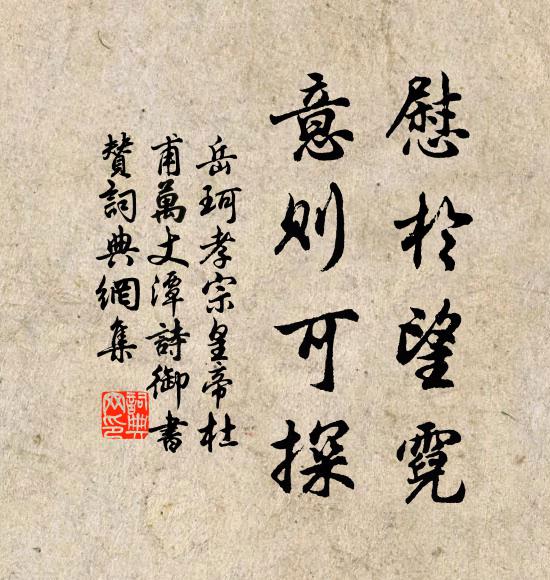 慰於望霓
意則可探
岳珂孝宗皇帝杜
甫萬丈潭詩御書
贊詞典網集